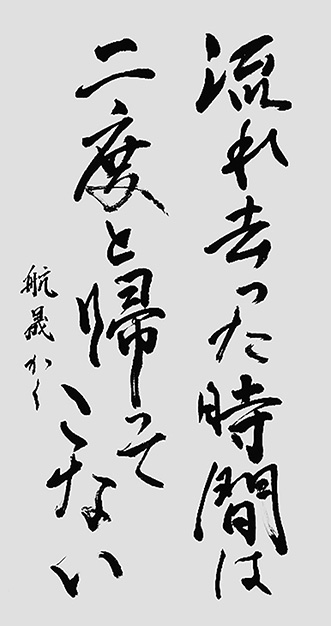 流れ去った時間は
二度と帰ってこない
航晟かく